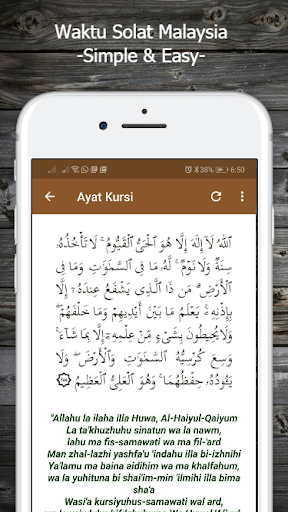 Waktu Solat Malaysia
-Simple & Easy-
38% 6:50
Ayat Kursi
اللَّهُ لَآ إِلَٰهَ إِلَّا هُوَ الْحَيُّ الْقَيُّومُ ۚ لَا تَأْخُذُهُ
سِنَةٌ وَلَا نَوْمٌ ۚ لَّهُ مَا فِي السَّمَٰوَٰتِ وَمَا فِي
الْأَرْضِ ۗ مَن ذَا الَّذِي يَشْفَعُ عِندَهُ إِلَّا
بِإِذْنِهِ ۚ يَعْلَمُ مَا بَيْنَ أَيْدِيهِمْ وَمَا خَلْفَهُمْ ۖ
وَلَا يُحِيطُونَ بِشَيْءٍ مِّنْ عِلْمِهِ إِلَّا بِمَا شَآءَ ۚ
وَسِعَ كُرْسِيُّهُ السَّمَٰوَٰتِ وَالْأَرْضَ ۖ وَلَا
يَئُودُهُ حِفْظُهُمَا ۚ وَهُوَ الْعَلِيُّ الْعَظِيمُ ٢٥٥
"Allahu la ilaha illa Huwa, Al-Haiyul-Qaiyum
La ta'khuzhuhu sinatun wa la nawm,
lahu ma fis-samawati wa ma fil-'ard
Man zhal-lazhi yashfa'u 'indahu illa bi-izhnihi
Ya'lamu ma baina aidihim wa ma khalfahum,
wa la yuhituna bi shai'im-min 'ilmihi illa bima
sha'a
Wasi'a kursiyuhus-samawati wal ard,